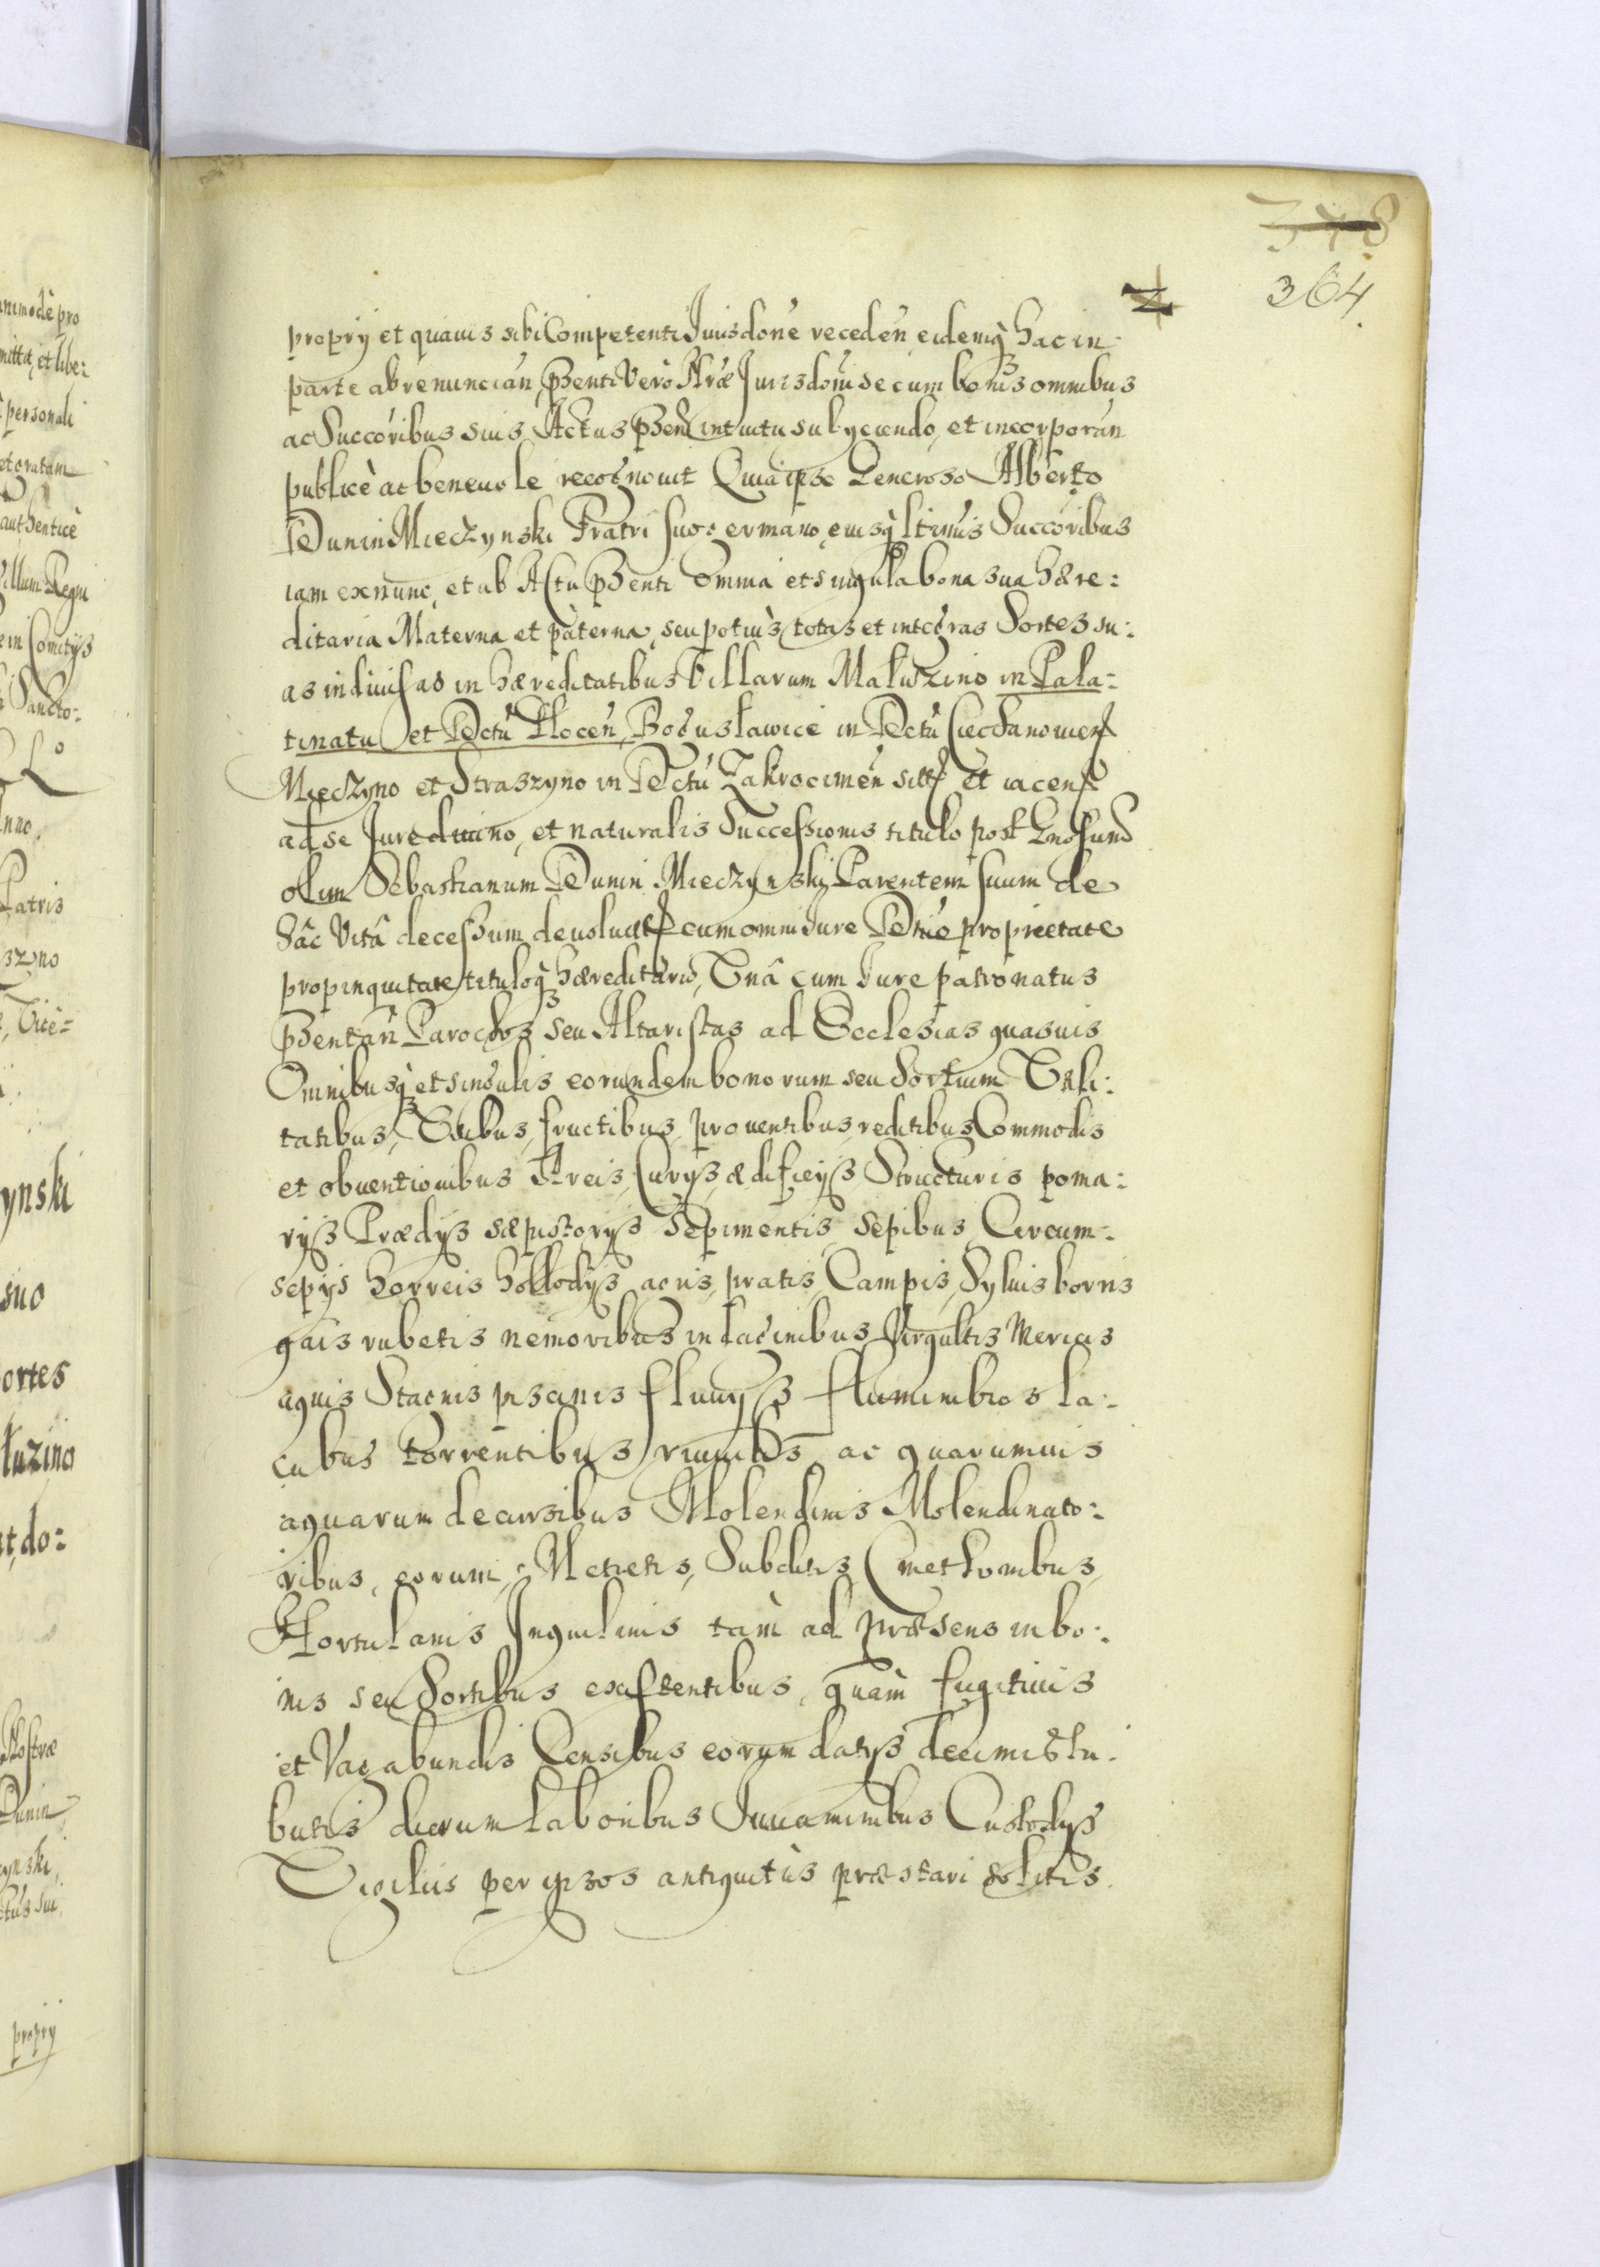 348
364
propry et quauis sibi Competenti Jurisdone receden, eidemq hac in
parte abrenuncian, pnti Vero Aræ Jurisdoni se cum bonis omnibus
ac Succoribus suis Actus pnti intuitu subyciendo, et incorporan
publicè ac beneuole recognouit Quia ipse Generoso Alberto
Dunin Mieczynski Fratri suo germano, eiusq ltimis Succoribus
iam exnunc, et ab Actu pnti omnia et singula bona sua hære:
ditaria Materna et paterna, seu potius totas et integras Sortes su:
as indiuisas in hæreditatibus Villarum Maluzino in Pala:
tinatu et Dctu Plocen, Boguslawice in Dctu Ciechanouien
Mieczyno et Straszyno in Dctu Zakrocimen sitt et iacen
ad se Jure diuino, et naturalis Successionis titulo post Gnosum
olim Sebastianum Dunin Mieczynsky Parentem suum de
hâc Vitâ decessum deuolut cum omni Jure Dnio proprietate
propinquitate tituloq hæreditario, Vnâ cum Jure patronatus
pntan Parochos seu Altaristas ad Ecclesias quasuis
Omnibusq et singulis eorundem bonorum seu Sortium Vtili:
tatibus, Vsibus, fructibus, prouentibus, reditibus Commodis
et obuentionibus Areis, Curys, ædificys Structuris poma:
rys Prædys sæpistorys sepimentis sepibus, Circum:
sepys horreis hollodys, agris, pratis, Campis, Syluis borris
gais rubetis nemoribus indaginibus Virgultis Mericis
aquis Stagnis piscinis fluuys fluminibus la:
cubus torrentibus riuulis, ac quarumuis
aquarum decursibus Molendinis Molendinato:
ribus, eorum, Metretis, Subditis, Cmethonibus,
Hortulanis Inquilinis tam ad præsens in bo:
nis seu Sortibus existentibus, quàm fugitiuis
et Vagabundis Censibus eorum datys decimis tri:
butis dierum laboribus Juuaminibus Custodys
Vigiliis per ipsos antiquitùs præstari solitis.